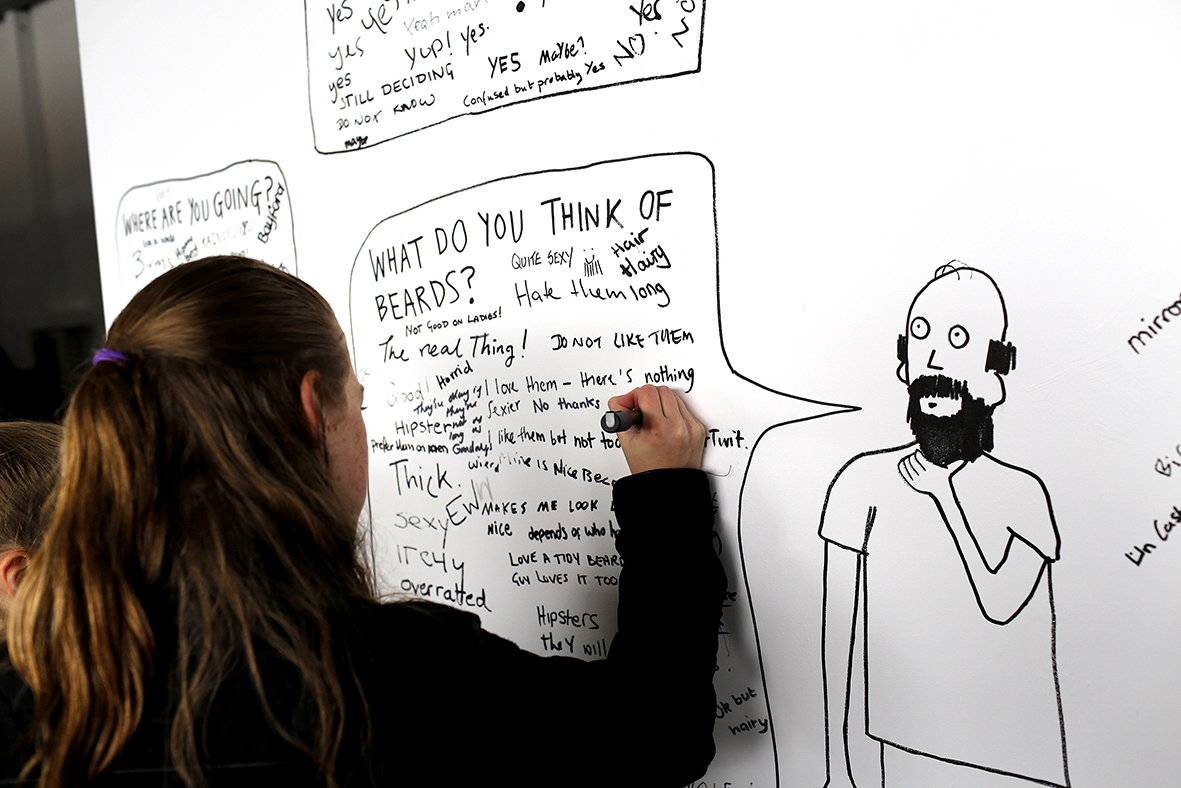 yes yes yeah man Yes
yes YUP! Yes. NO
yes YES MAYBE? NO.
STILL DECIDING Confused but probably Yes
DO NOT KNOW
maybe
WHERE ARE YOU GOING?
Bayford
3
WHAT DO YOU THINK OF
BEARDS?
QUITE SEXY Hair
Hairy
Hate them long
NOT GOOD ON LADIES!
The real Thing! DO NOT LIKE THEM
Good! Horrid
I love them – there's nothing
They're okay if
they're
Sexier No thanks
Hipster not
long
prefer them on men Gandalf
I like them but not too
Twit.
Thick. wierd Mine is Nice
EW
MAKES ME LOOK
sexy Nice depends of who
ITCHY LOVE A TIDY BEARD
GUY LOVES IT TOO
overratted
Hipsters
they will
Ok but
hairy
mirror